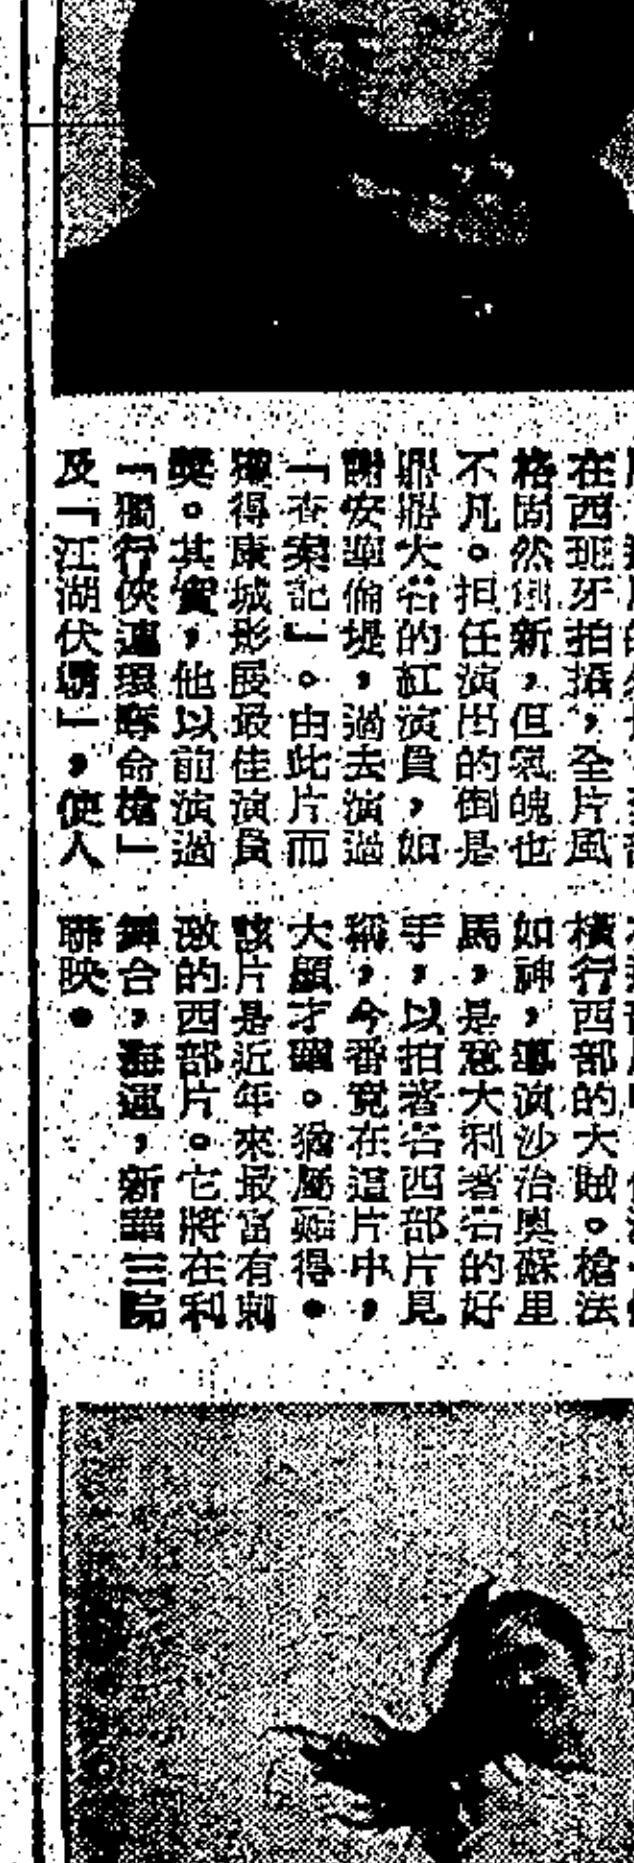 在西班牙拍攝,全片風
格固然創新,但氣魄也
不凡。担任演出的倒是
鼎鼎大名的紅演員,如
謝安華倫堤,過去演過
「查案記」。由此片而
獲得康城影展最佳演員
獎。其實,他以前演過
「獨行俠連環奪命槍」
及「江湖伏霸」,使人
橫行西部的大賊。槍法
如神,導演沙治奧蘇里
馬,是意大利著名的好
手,以拍著名西部片見
稱,今番竟在這片中,
大顯才華。猶屬難得。
該片是近年來最富有刺
激的西部片。它將在利
舞合,海運,新華三院
聯映。